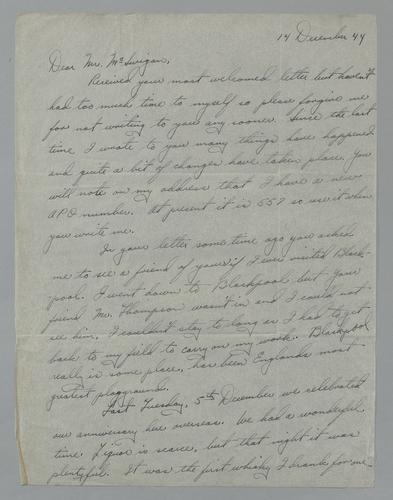 14 December 44
Dear Mr. McSwigan,
Received your most welcomed letter but haven't
had too much time to myself so please forgive me
for not writing to you any sooner. Since the last
time I wrote to you many things have happened
and quite a bit of changes have taken place. You
will note on my address that I have a new
APO number. At present it is 557 so use it when
you write me.
In your letter some time ago you asked
me to see a friend of yours if I ever visited Black-
pool. I went down to Blackpool but your
friend Mr. Thompson wasn't in and I could not
see him. I couldn't stay to long as I had to get
back to my field to carry on my work. Blackpool
really is some place, has been Englands most
greatest playground.
Last Tuesday, 5th December we celebrated
our anniversary here overseas. We had a wonderful
time. Liquor is scarce, but that night it was
plentyful. It was the first whisky I drank for one